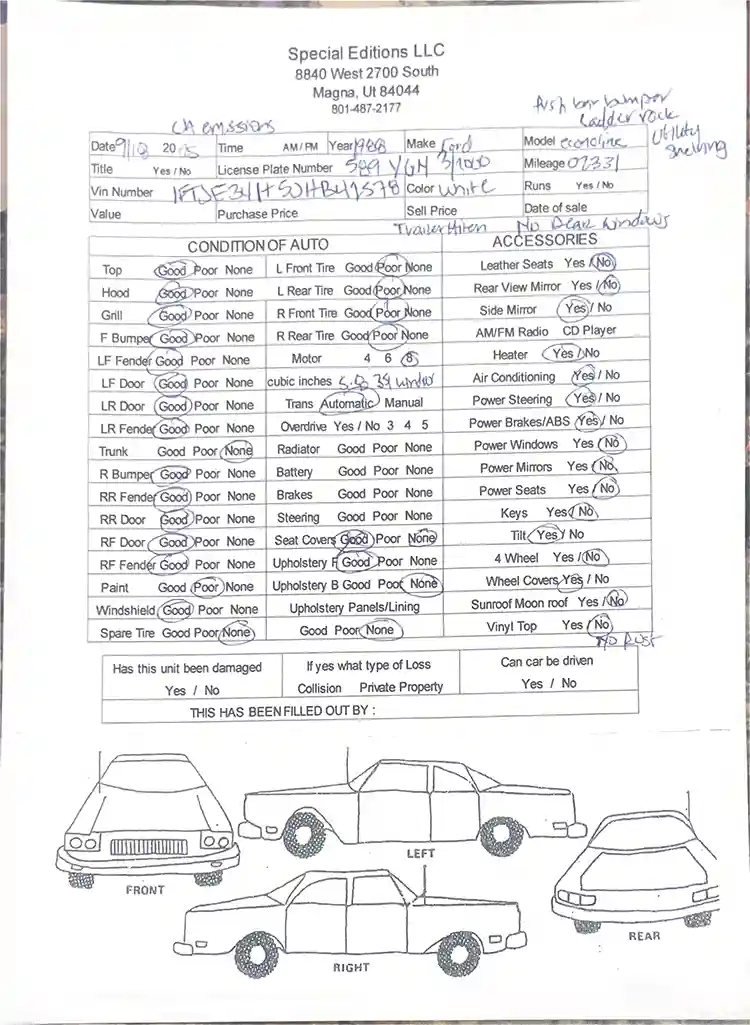 Special Editions LLC
8840 West 2700 South
Magna, Ut 84044
801-487-2177
Push bar bumper
Ladder rack
Utility
Shelving
CA emissions
Date 9/18 2015 Time AM / PM Year 1988 Make Ford Model econoline
Title Yes / No License Plate Number 589 YGH 3/1000 Mileage 02331
Vin Number Color White Runs Yes / No
Value Purchase Price Sell Price Date of sale
Trailer Hitch No Rear Windows
CONDITION OF AUTO ACCESSORIES
Top Good Poor None L Front Tire Good Poor None Leather Seats Yes / No
Hood Good Poor None L Rear Tire Good Poor None Rear View Mirror Yes / No
Grill Good Poor None R Front Tire Good Poor None Side Mirror Yes / No
F Bumper Good Poor None R Rear Tire Good Poor None AM/FM Radio CD Player
LF Fender Good Poor None Motor 4 6 8 Heater Yes / No
LF Door Good Poor None cubic inches 5.8 Air Conditioning Yes / No
LR Door Good Poor None Trans Automatic Manual Power Steering Yes / No
LR Fender Good Poor None Overdrive Yes / No 3 4 5 Power Brakes/ABS Yes / No
Trunk Good Poor None Radiator Good Poor None Power Windows Yes / No
R Bumper Good Poor None Battery Good Poor None Power Mirrors Yes / No
RR Fender Good Poor None Brakes Good Poor None Power Seats Yes / No
RR Door Good Poor None Steering Good Poor None Keys Yes / No
RF Door Good Poor None Seat Covers Good Poor None Tilt Yes / No
RF Fender Good Poor None Upholstery F Good Poor None 4 Wheel Yes / No
Paint Good Poor None Upholstery B Good Poor None Wheel Covers Yes / No
Windshield Good Poor None Upholstery Panels/Lining Sunroof Moon roof Yes / No
Spare Tire Good Poor None Good Poor None Vinyl Top Yes / No
No Rust
Has this unit been damaged If yes what type of Loss Can car be driven
Yes / No Collision Private Property Yes / No
THIS HAS BEEN FILLED OUT BY :
LEFT
FRONT
REAR
RIGHT